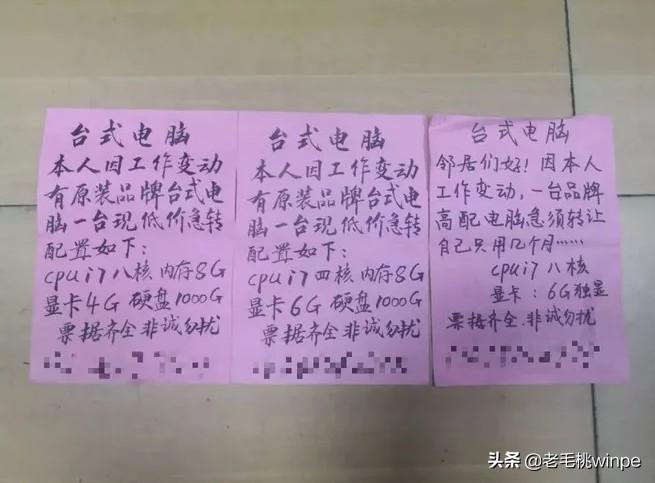 台式电脑
本人因工作变动
有原装品牌台式电
脑一台现低价急转
配置如下：
cpu i7 八核 内存8G
显卡4G 硬盘1000G
票据齐全 非诚勿扰
台式电脑
本人因工作变动
有原装品牌台式电
脑一台现低价急转
配置如下：
cpu i7 四核 内存8G
显卡6G 硬盘1000G
票据齐全 非诚勿扰
台式电脑
邻居们好！因本人
工作变动，一台品牌
高配电脑急须转让
自己只用几个月……
cpu i7 八核
显卡：6G独显
票据齐全.非诚勿扰
头条 @老毛桃winpe